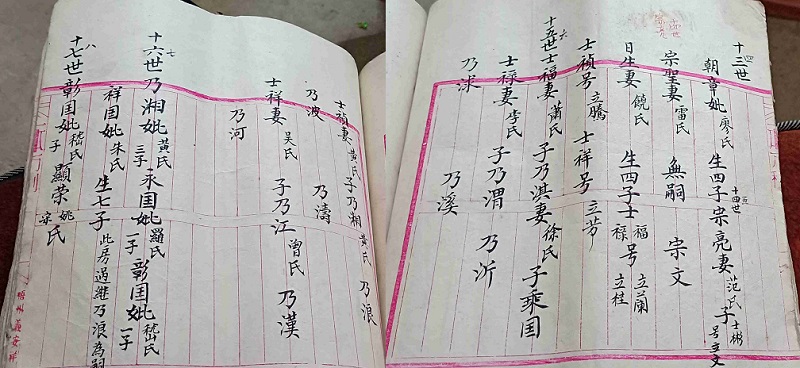 十三世
四
朝章妣廖氏生四子宗亮妻范氏子士彬号立文
十四世
宗聖妻雷氏 無嗣 宗文
日生妻饒氏 生四子士福禄号立蘭立桂
士禎号立騰 士祥号立芳
十五世士福妻蕭氏子乃淇妻徐氏子乘国
六
士禄妻李氏子乃渭 乃沂
乃沭 乃溪
士禎妻黄氏子乃湘黄氏 乃浪
乃波 乃濤
士祥妻吴氏 子乃江曾氏 乃漢
乃河
十六世乃湘妣黄氏三子永国妣羅氏一子彰国妣嵇氏一子
七
祥国妣朱氏 生七子此房過継乃浪為嗣
十七世彰国妣嵇氏子顯荣姚宗氏
八